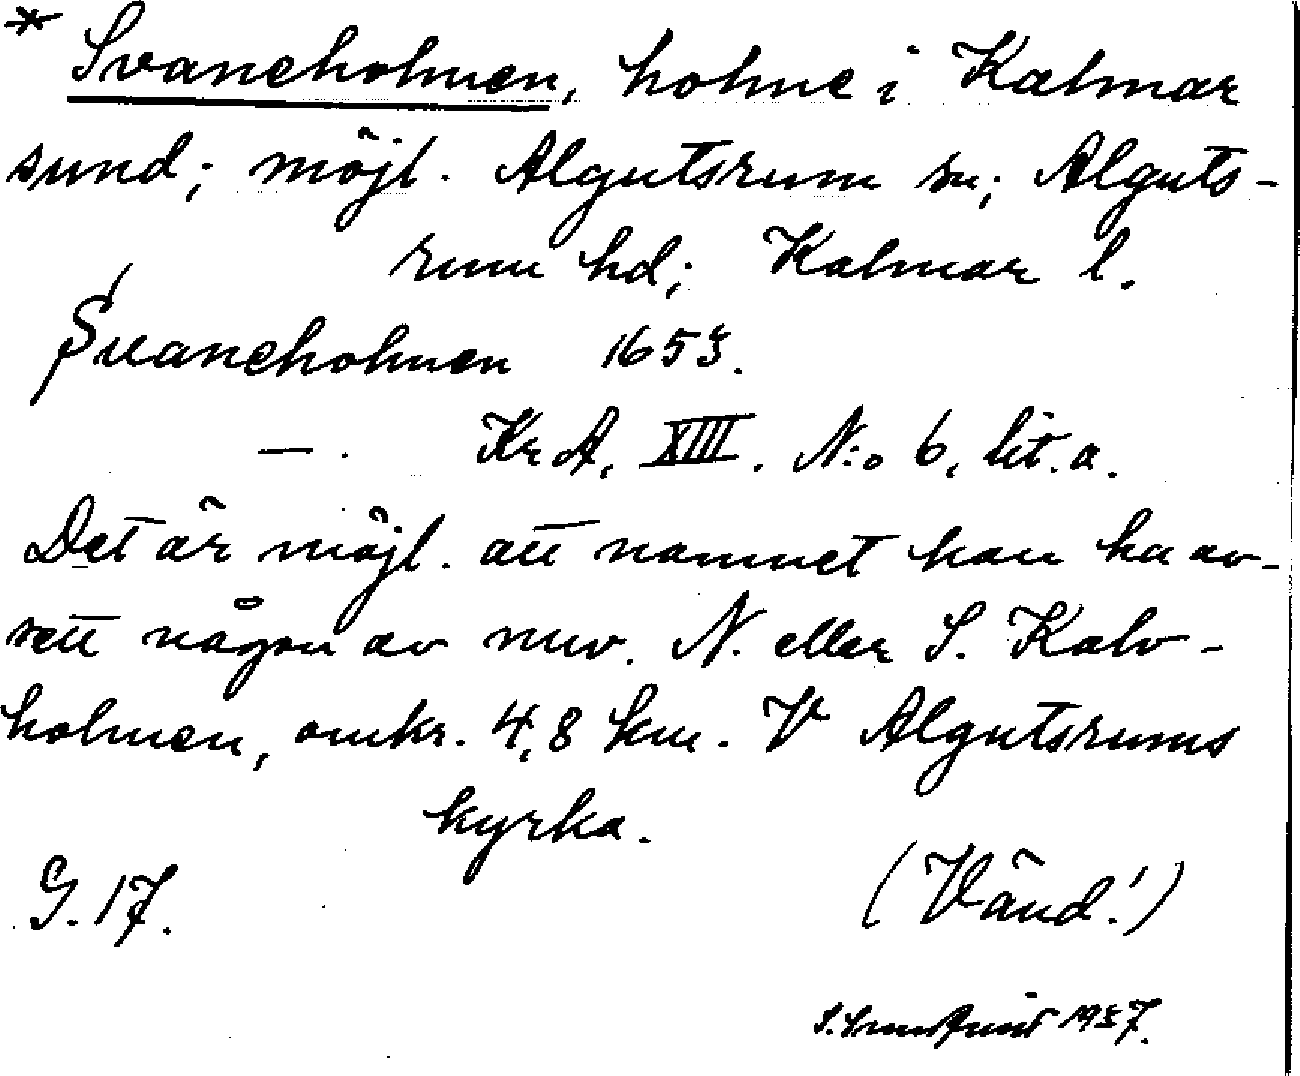 * Svaneholmen, holme i Kalmar
sund; möjl. Algutsrum sn; Alguts-
rum hd; Kalmar l.
Svaneholmen 1653.
—. KrA, XIII. N:o 6, lit. a.
Det är möjl. att namnet kan ha av-
sett någon av nuv. N. eller S. Kalv-
holmen, omkr. 4,8 km. V Algutsrums
kyrka.
G. 17. (Vänd!)
1937.